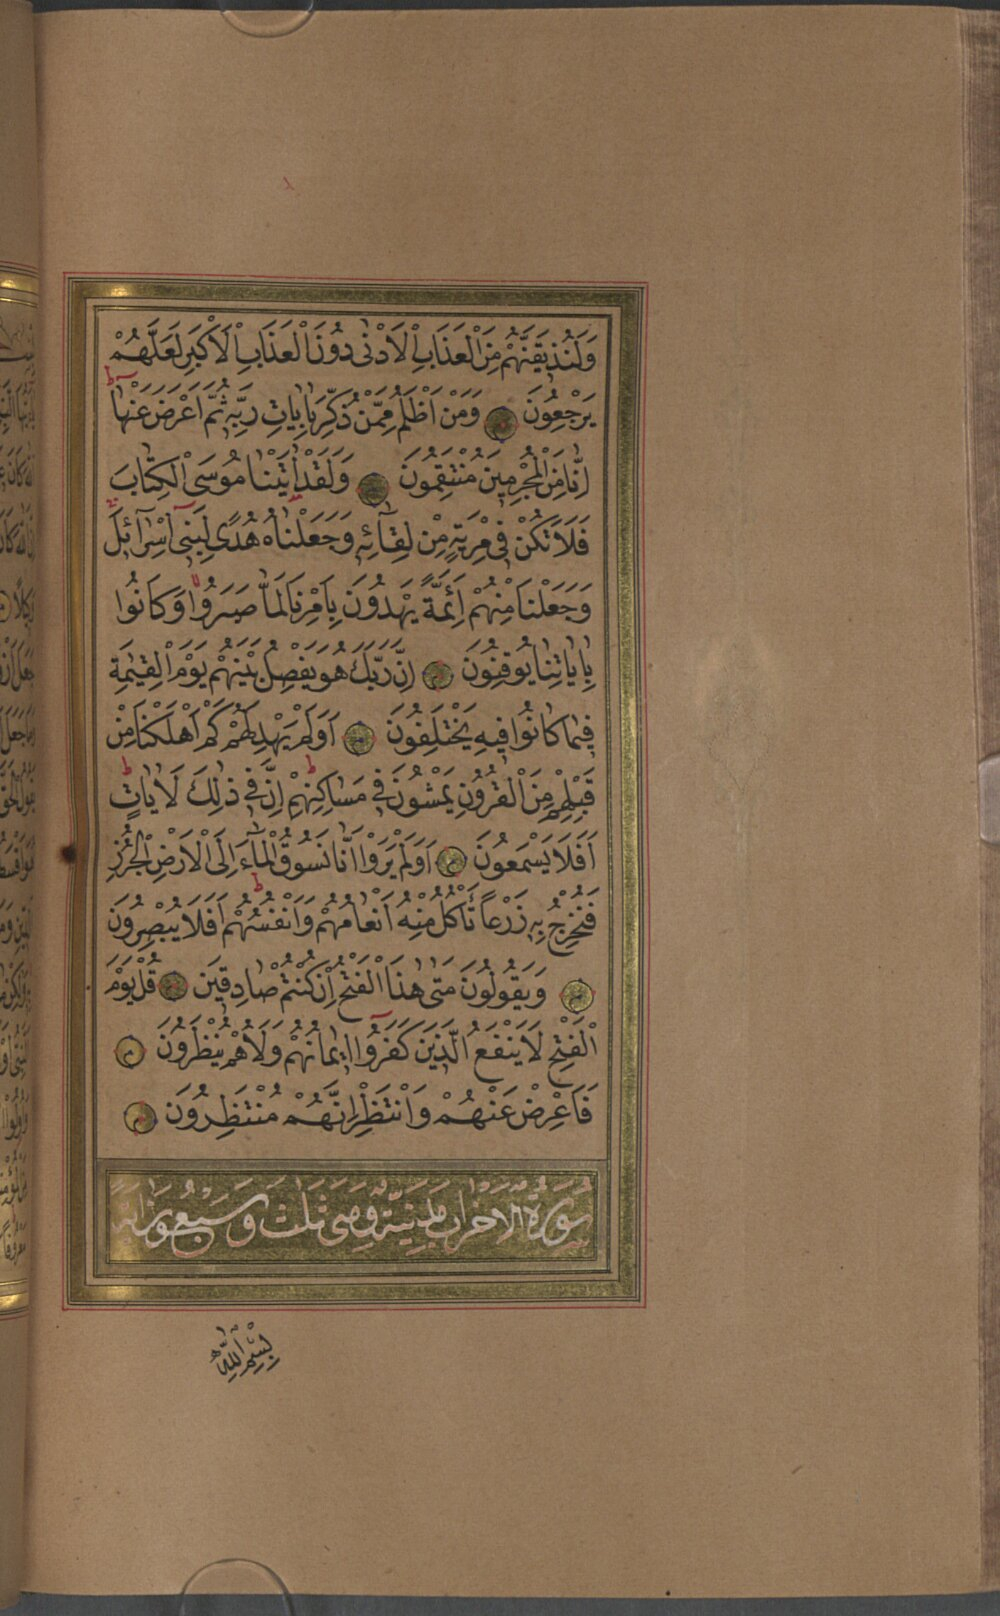 وَلَنُذِيقَنَّهُمْ مِنَ الْعَذَابِ الْاَدْنٰى دُونَ الْعَذَابِ الْاَكْبَرِ لَعَلَّهُمْ
يَرْجِعُونَ وَمَنْ اَظْلَمُ مِمَّنْ ذُكِّرَ بِاٰيَاتِ رَبِّهٖ ثُمَّ اَعْرَضَ عَنْهَا
اِنَّا مِنَ الْمُجْرِمِينَ مُنْتَقِمُونَ وَلَقَدْ اٰتَيْنَا مُوسَى الْكِتَابَ
فَلَا تَكُنْ فِى مِرْيَةٍ مِنْ لِقَٓائِهٖ وَجَعَلْنَاهُ هُدًى لِبَنٖٓى اِسْرَٓائِلَ
وَجَعَلْنَا مِنْهُمْ اَئِمَّةً يَهْدُونَ بِاَمْرِنَا لَمَّا صَبَرُوا وَكَانُوا
بِاٰيَاتِنَا يُوقِنُونَ اِنَّ رَبَّكَ هُوَ يَفْصِلُ بَيْنَهُمْ يَوْمَ الْقِيٰمَةِ
فِيمَا كَانُوا فِيهِ يَخْتَلِفُونَ اَوَلَمْ يَهْدِ لَهُمْ كَمْ اَهْلَكْنَا مِنْ
قَبْلِهِمْ مِنَ الْقُرُونِ يَمْشُونَ فِى مَسَاكِنِهِمْ اِنَّ فِى ذٰلِكَ لَاٰيَاتٍ
اَفَلَا يَسْمَعُونَ اَوَلَمْ يَرَوْا اَنَّا نَسُوقُ الْمَٓاءَ اِلَى الْاَرْضِ الْجُرُزِ
فَنُخْرِجُ بِهٖ زَرْعًا تَأْكُلُ مِنْهُ اَنْعَامُهُمْ وَاَنْفُسُهُمْ اَفَلَا يُبْصِرُونَ
وَيَقُولُونَ مَتٰى هٰذَا الْفَتْحُ اِنْ كُنْتُمْ صَادِقِينَ قُلْ يَوْمَ
الْفَتْحِ لَا يَنْفَعُ الَّذِينَ كَفَرُٓوا اِيمَانُهُمْ وَلَا هُمْ يُنْظَرُونَ
فَاَعْرِضْ عَنْهُمْ وَانْتَظِرْ اِنَّهُمْ مُنْتَظِرُونَ
سُورَةُ الاحزاب مَدَنِيَّةٌ وَهِىَ ثَلٰثَ وَسَبْعُونَ اٰيَةً
بِسْمِ اللّٰهِ